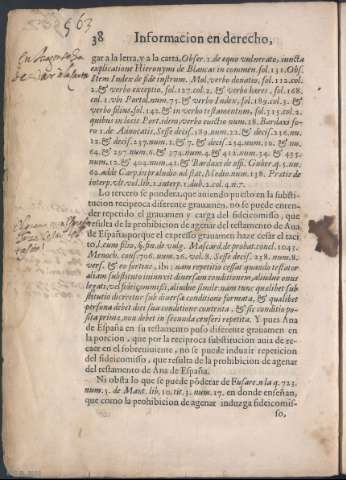 563
38 Informacion en derecho,
gar a la letra, y a la carta. Obser. 2. de equo vulnerato, iuncta
explicatione Hieronymi de Blancas in commen. fol. 131. Obs.
Item Index de fide instrum. Mol. verbo donatio, fol. 112. col.
2. & verbo exceptio. fol. 127. col. 2. & verbo heres, fol. 168.
col. 1. vbi Portol. num. 75. & verbo Index, fol. 189. col. 3. &
verbo filius, fol. 142. & in verbo testamentum, fol. 315. col. 2.
quibus in locis Port. idem, verbo exceptio num. 18. Bardaxi foro
1. de Aduocatis. Sese decis. 189. num. 22. & decis. 216. nu.
12. & decis. 237. num. 2. & 7. & decis. 234. num. 10. & nu.
64. & 297. num. 6. & 274. num. 4. & 412. num. 34. & 435.
num. 12. & 404. num. 41. & Bardaxi de offi. Guber. q. 5. nu.
62. addo Carp. in præludio ad stat. Medio. num. 138. Pratio de
interp. vlt. vol. lib. 2. interp. 1. dub. 2. sol. 4. n. 7.
Lo tercero se pondera, que auiendo puesto en la substi-
tucion reciproca diferente grauamen, no se puede enten-
der repetido el grauamen y carga del fideicomisso, que
resulta de la prohibicion de agenar del testamento de Ana
de España: porque el expresso grauamen haze cesar el taci-
to, l. cum filio, §. fin. de vulg. Mascard. de probat. concl. 1043.
Menoch. cons. 706. num. 26. vol. 8. Sese decis. 258. num. 8.
vers. & eo fortius, ibi: nam repetitio cessat quando testator
aliam substituto iniunxit diuersam conditionem, aliudue onus
legati, vel fideicomissi, aliudue simile: nam tunc qualibet sub-
stitutio dicitur sub diuersa conditione formata, & qualibet
persona debet dici sua conditione contenta, & sic conditio po-
sita prime, non debet in secunda censeri repetita. Y pues Ana
de España en su testamento puso diferente grauamen en
la porcion, que por la reciproca substitucion auia de re-
caer en el sobreuiuiente, no se puede induzir repeticion
del fideicomisso, que resulta de la prohibicion de agenar
del testamento de Ana de España.
Ni obsta lo que se puede põderar de Fusare. n la q. 723.
num. 3. de Mant. lib. 10. tit. 3. num. 17. en donde enseñan,
que como la prohibicion de agenar induzga fideicomis-
so,